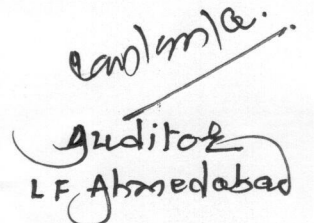 Auditor
LF Ahmedabad